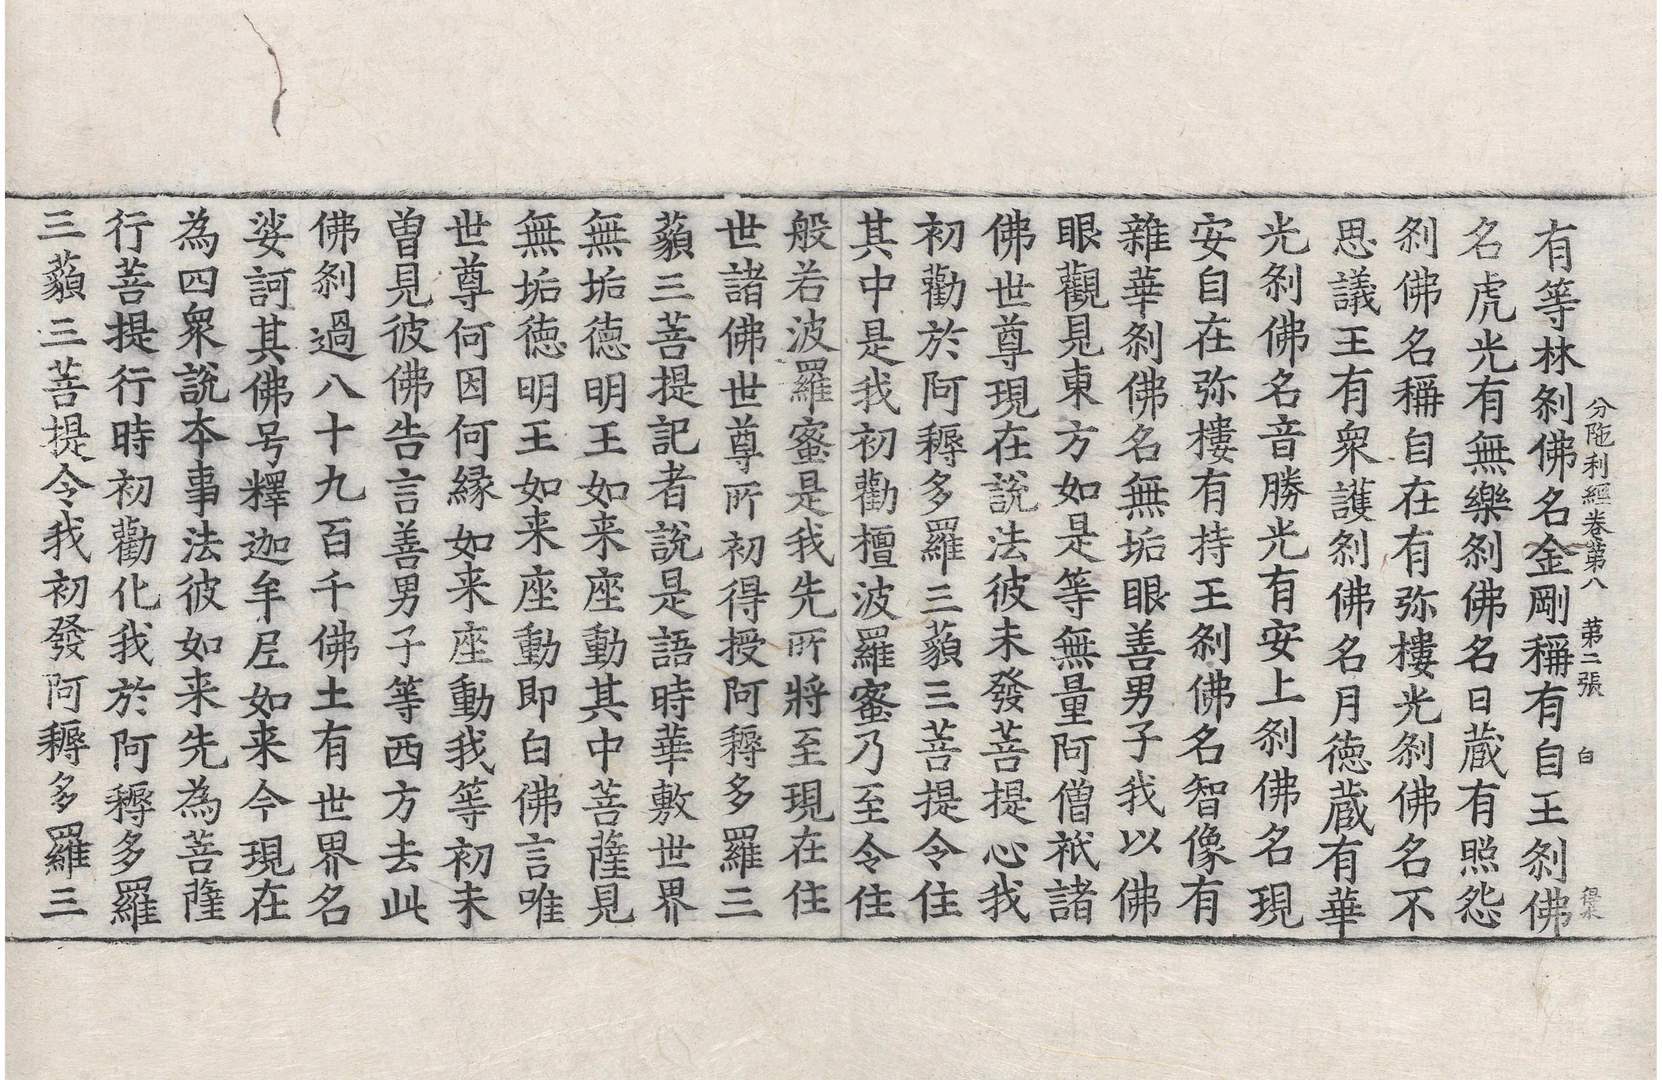 分陁利經卷第八　第二張　白
有等林刹佛名金剛稱有自王刹佛
名虎光有無樂刹佛名日蔵有照怨
刹佛名稱自在有弥樓光刹佛名不
思議王有衆護刹佛名月德蔵有華
光刹佛名音勝光有安上刹佛名現
安自在弥樓有持王刹佛名智像有
雜華刹佛名無垢眼善男子我以佛
眼觀見東方如是等無量阿僧祇諸
佛世尊現在說法彼未發菩提心我
初勸於阿耨多羅三藐三菩提令住
其中是我初勸檀波羅蜜乃至令住
般若波羅蜜是我先所將至現在住
世諸佛世尊所初得授阿耨多羅三
藐三菩提記者說是語時華敷世界
無垢德明王如来座動其中菩薩見
無垢德明王如来座動即白佛言唯
世尊何因何縁如来座動我等初未
曾見彼佛告言善男子等西方去此
佛刹過八十九百千佛土有世界名
娑訶其佛号釋迦牟尼如来今現在
為四衆說本事法彼如来先為菩薩
行菩提行時初勸化我於阿耨多羅
三藐三菩提令我初發阿耨多羅三